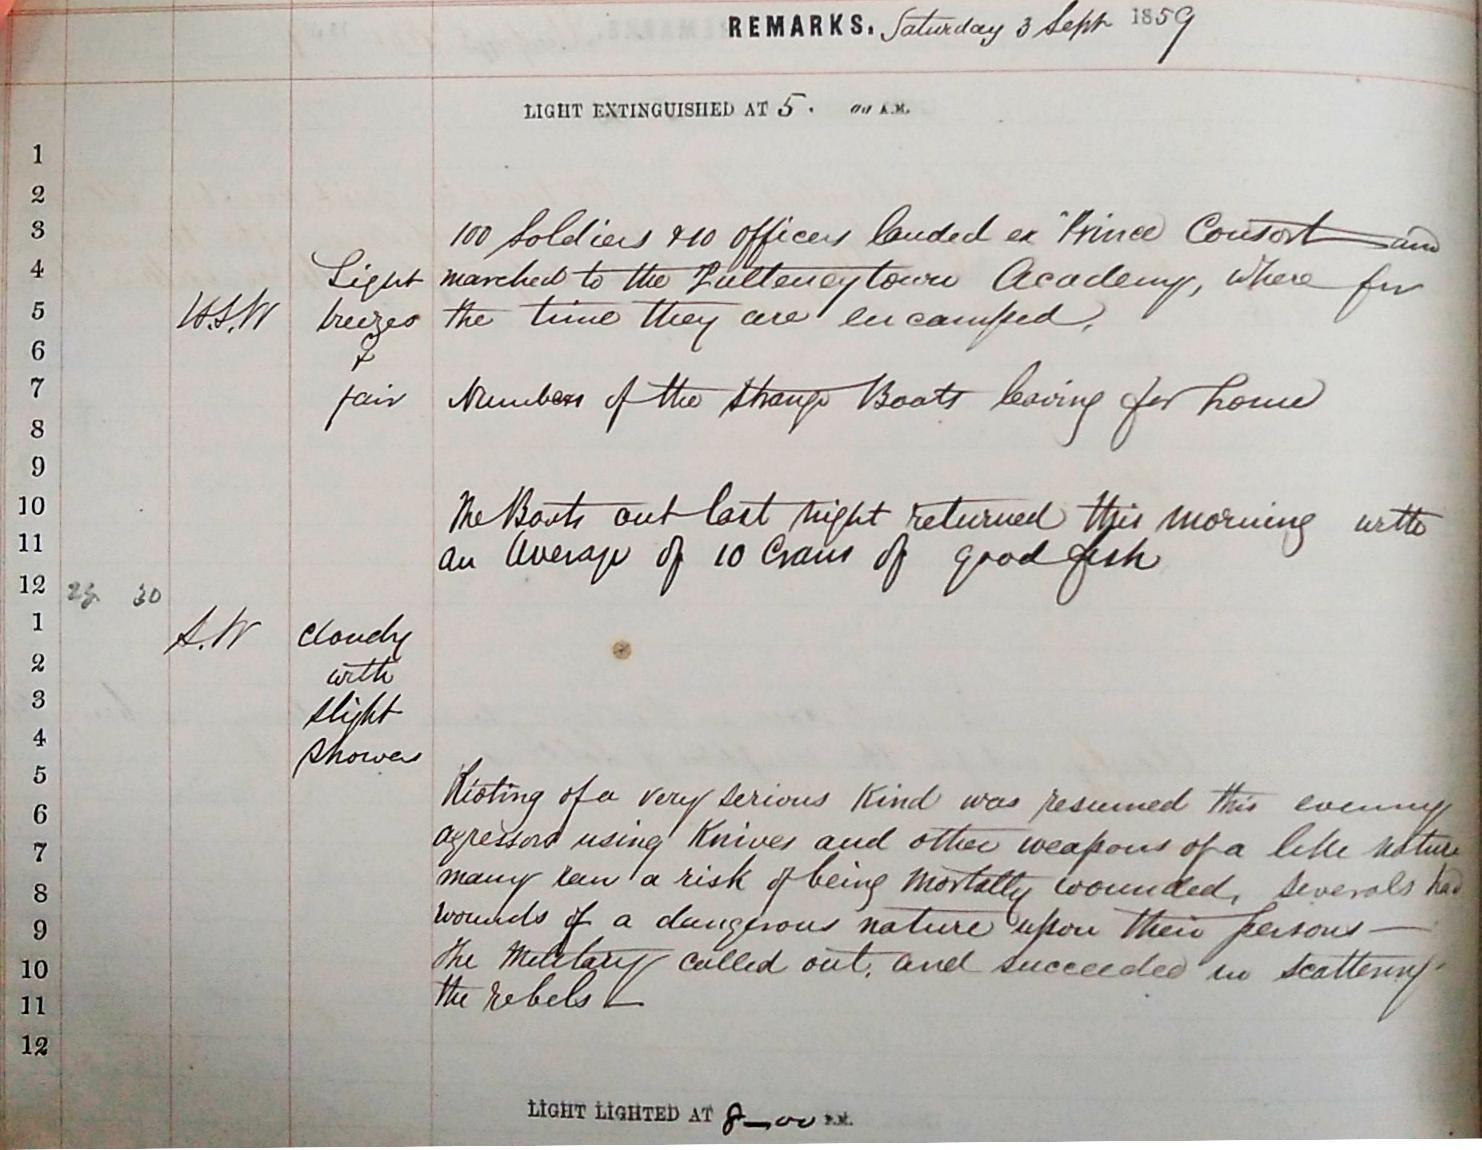 REMARKS. Saturday 3 Sept 1859
LIGHT EXTINGUISHED AT 5. 00 A.M.
1
2
3 100 Soldiers & 10 officers landed ex "Prince Consort and
4 Light marched to the Pulteneytown Academy, where for
5 W.S.W breezes the time they are encamped.
6 &
7 fair Numbers of the strange Boats leaving for home
8
9
10 The Boats out last night returned this morning with
11 an average of 10 Crans of good fish
12 29 30
1 S.W Cloudy
2 with
3 slight
4 showers
5 Rioting of a very serious kind was resumed this evening
6 agressors using Knives and other weapons of a like nature
7 many ran a risk of being mortally wounded, severals had
8 wounds of a dangerous nature upon their persons —
9 The Military called out, and succeeded in scattering
10 the rebels —
11
12
LIGHT LIGHTED AT 8—00 P.M.